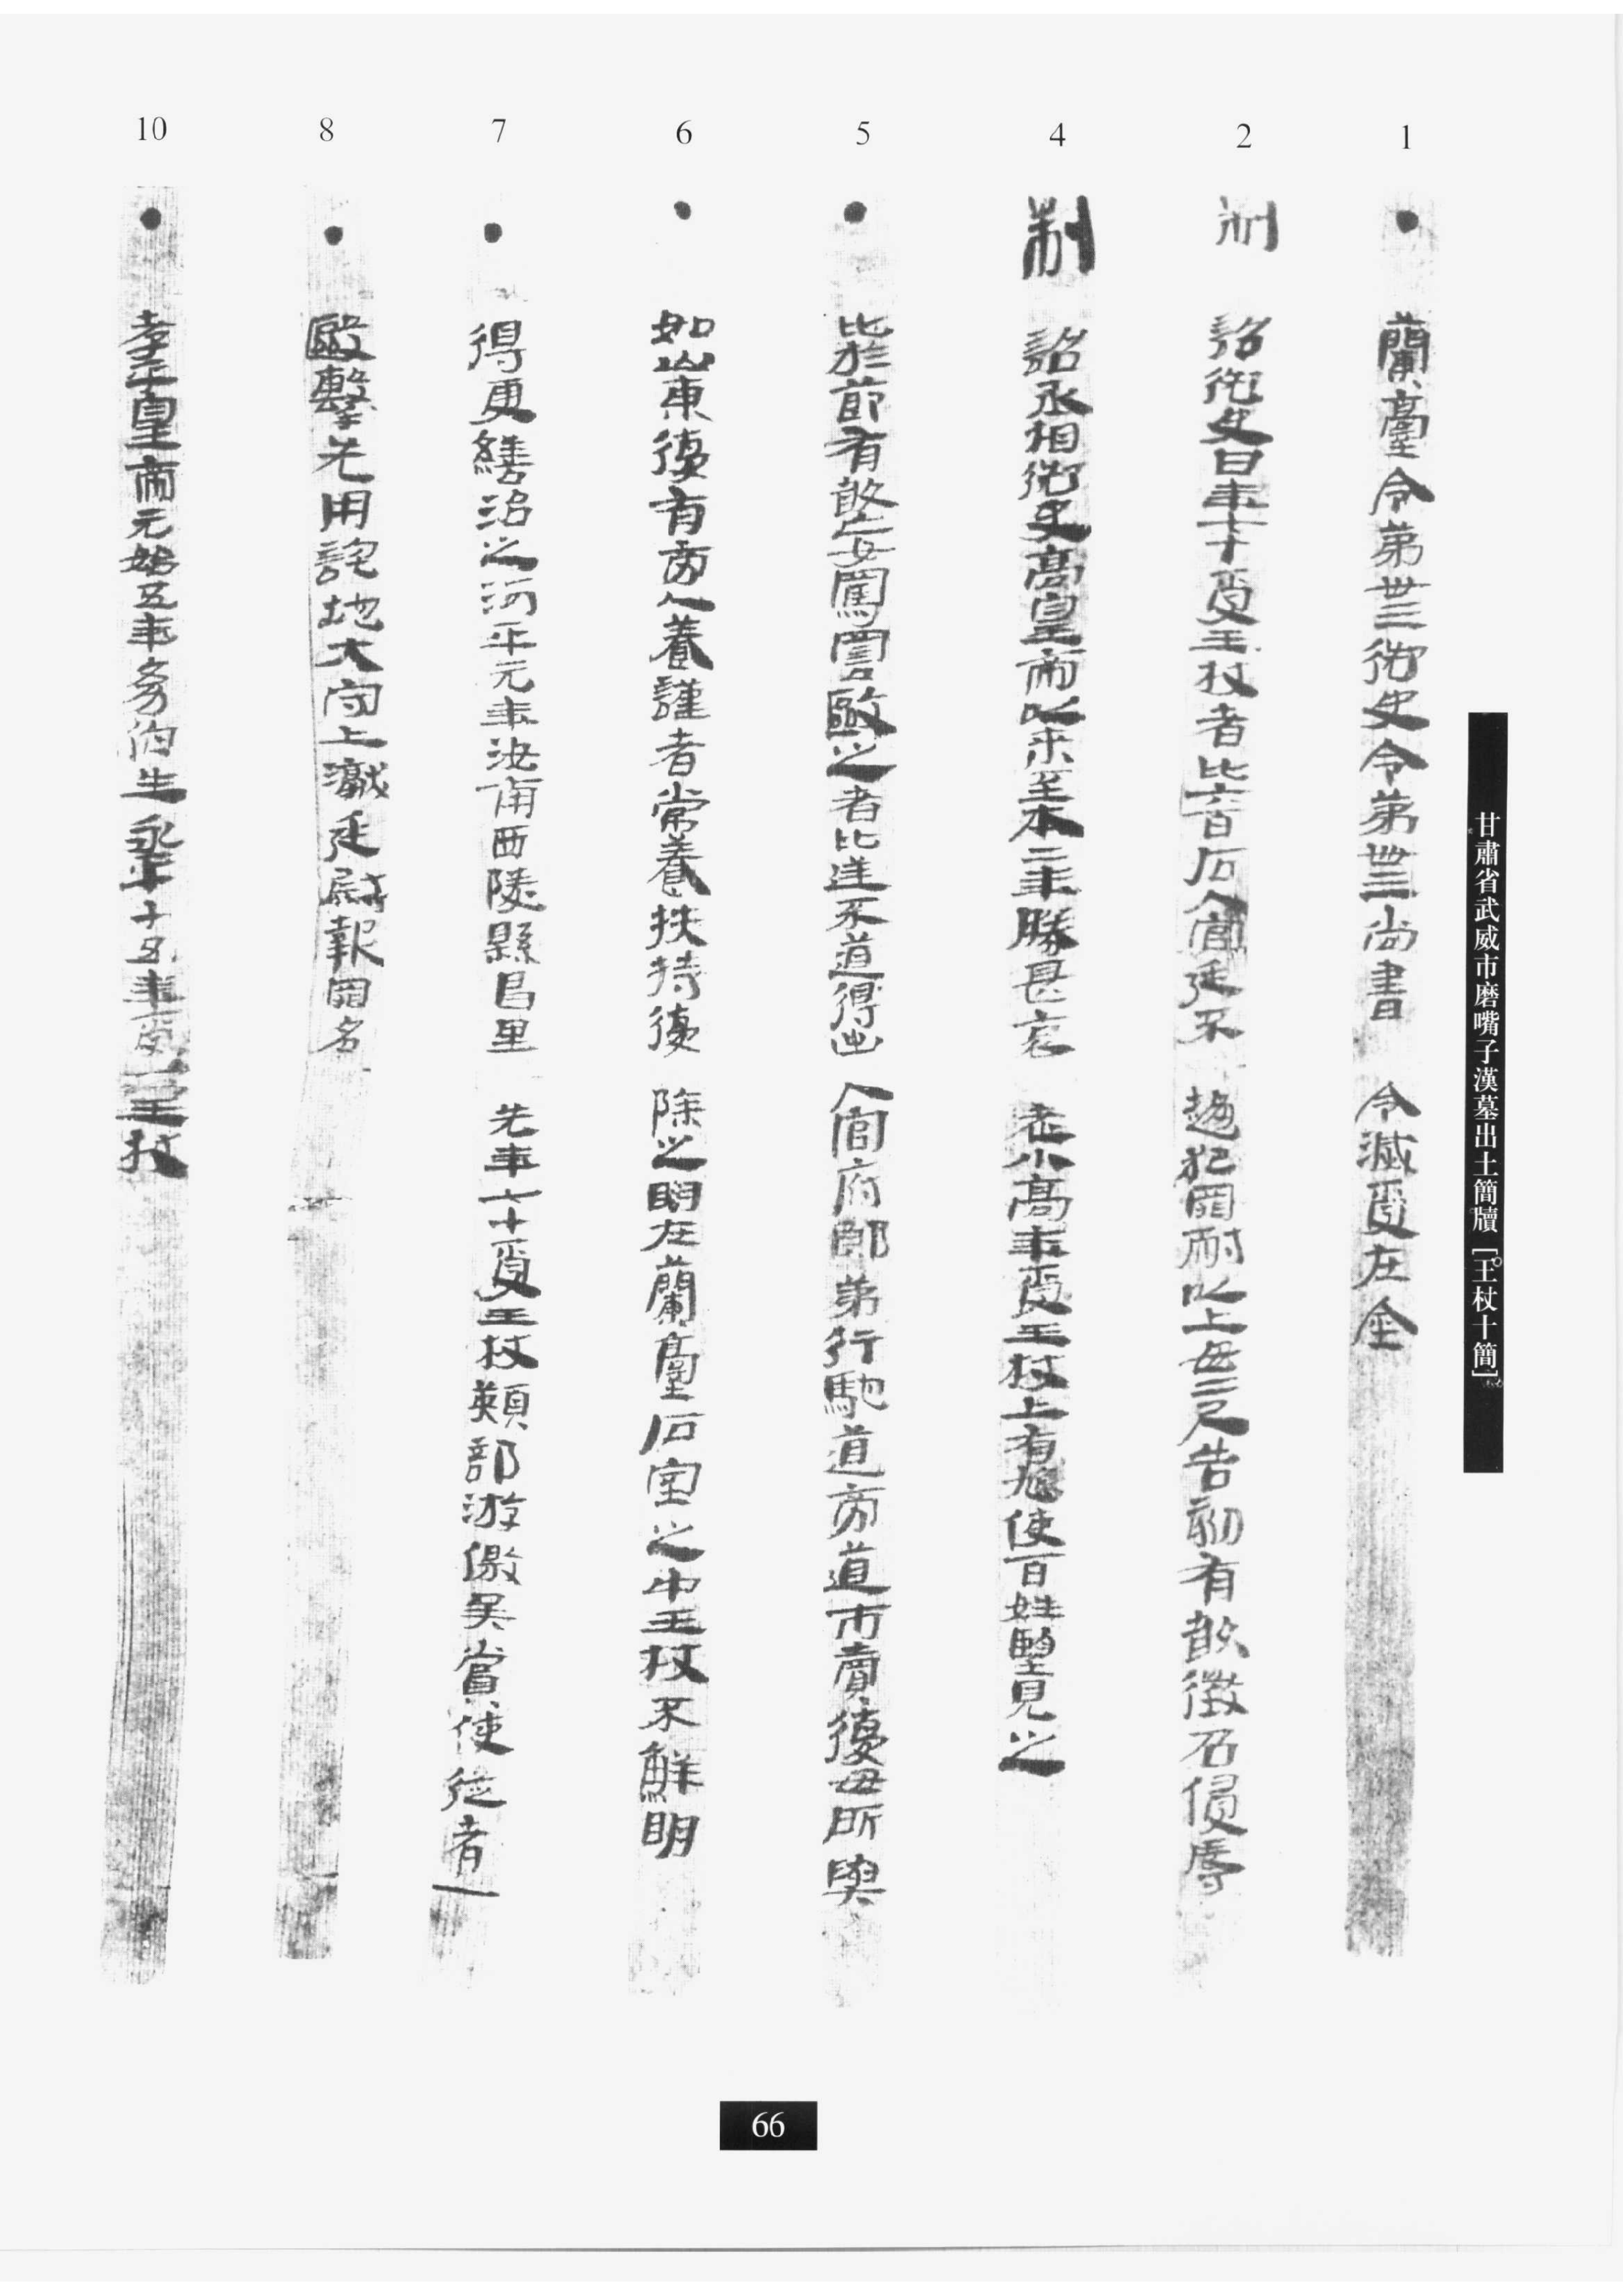 甘肅省武威市磨嘴子漢墓出土簡牘[王杖十簡]
1
● 蘭臺令弟卅三御史令弟卌三尚書 令滅受在金
2
制 詔御史曰年七十受王杖者比六百石入宮廷不 趨犯罪耐以上毋二尺告劾有敢徵召侵辱
4
制 詔丞相御史高皇帝以來至本二年勝甚哀 老小高年受王杖上有鳩使百姓望見之
5
● 比於節有敢妄罵詈毆之者比逆不道得出 入官府郎弟行馳道旁道市賣復毋所與
6
● 如山東復有旁人養謹者常養扶持復 除之明在蘭臺石室之中王杖不鮮明
7
● 得更繕治之河平元年汝南西陵縣昌里 先年七十受王杖熲部游徼吳賞使從者
8
● 毆擊先用詫地大守上讞廷尉報罪名
10
● 孝平皇帝元始五年幼伯生永平十五年受王杖
66